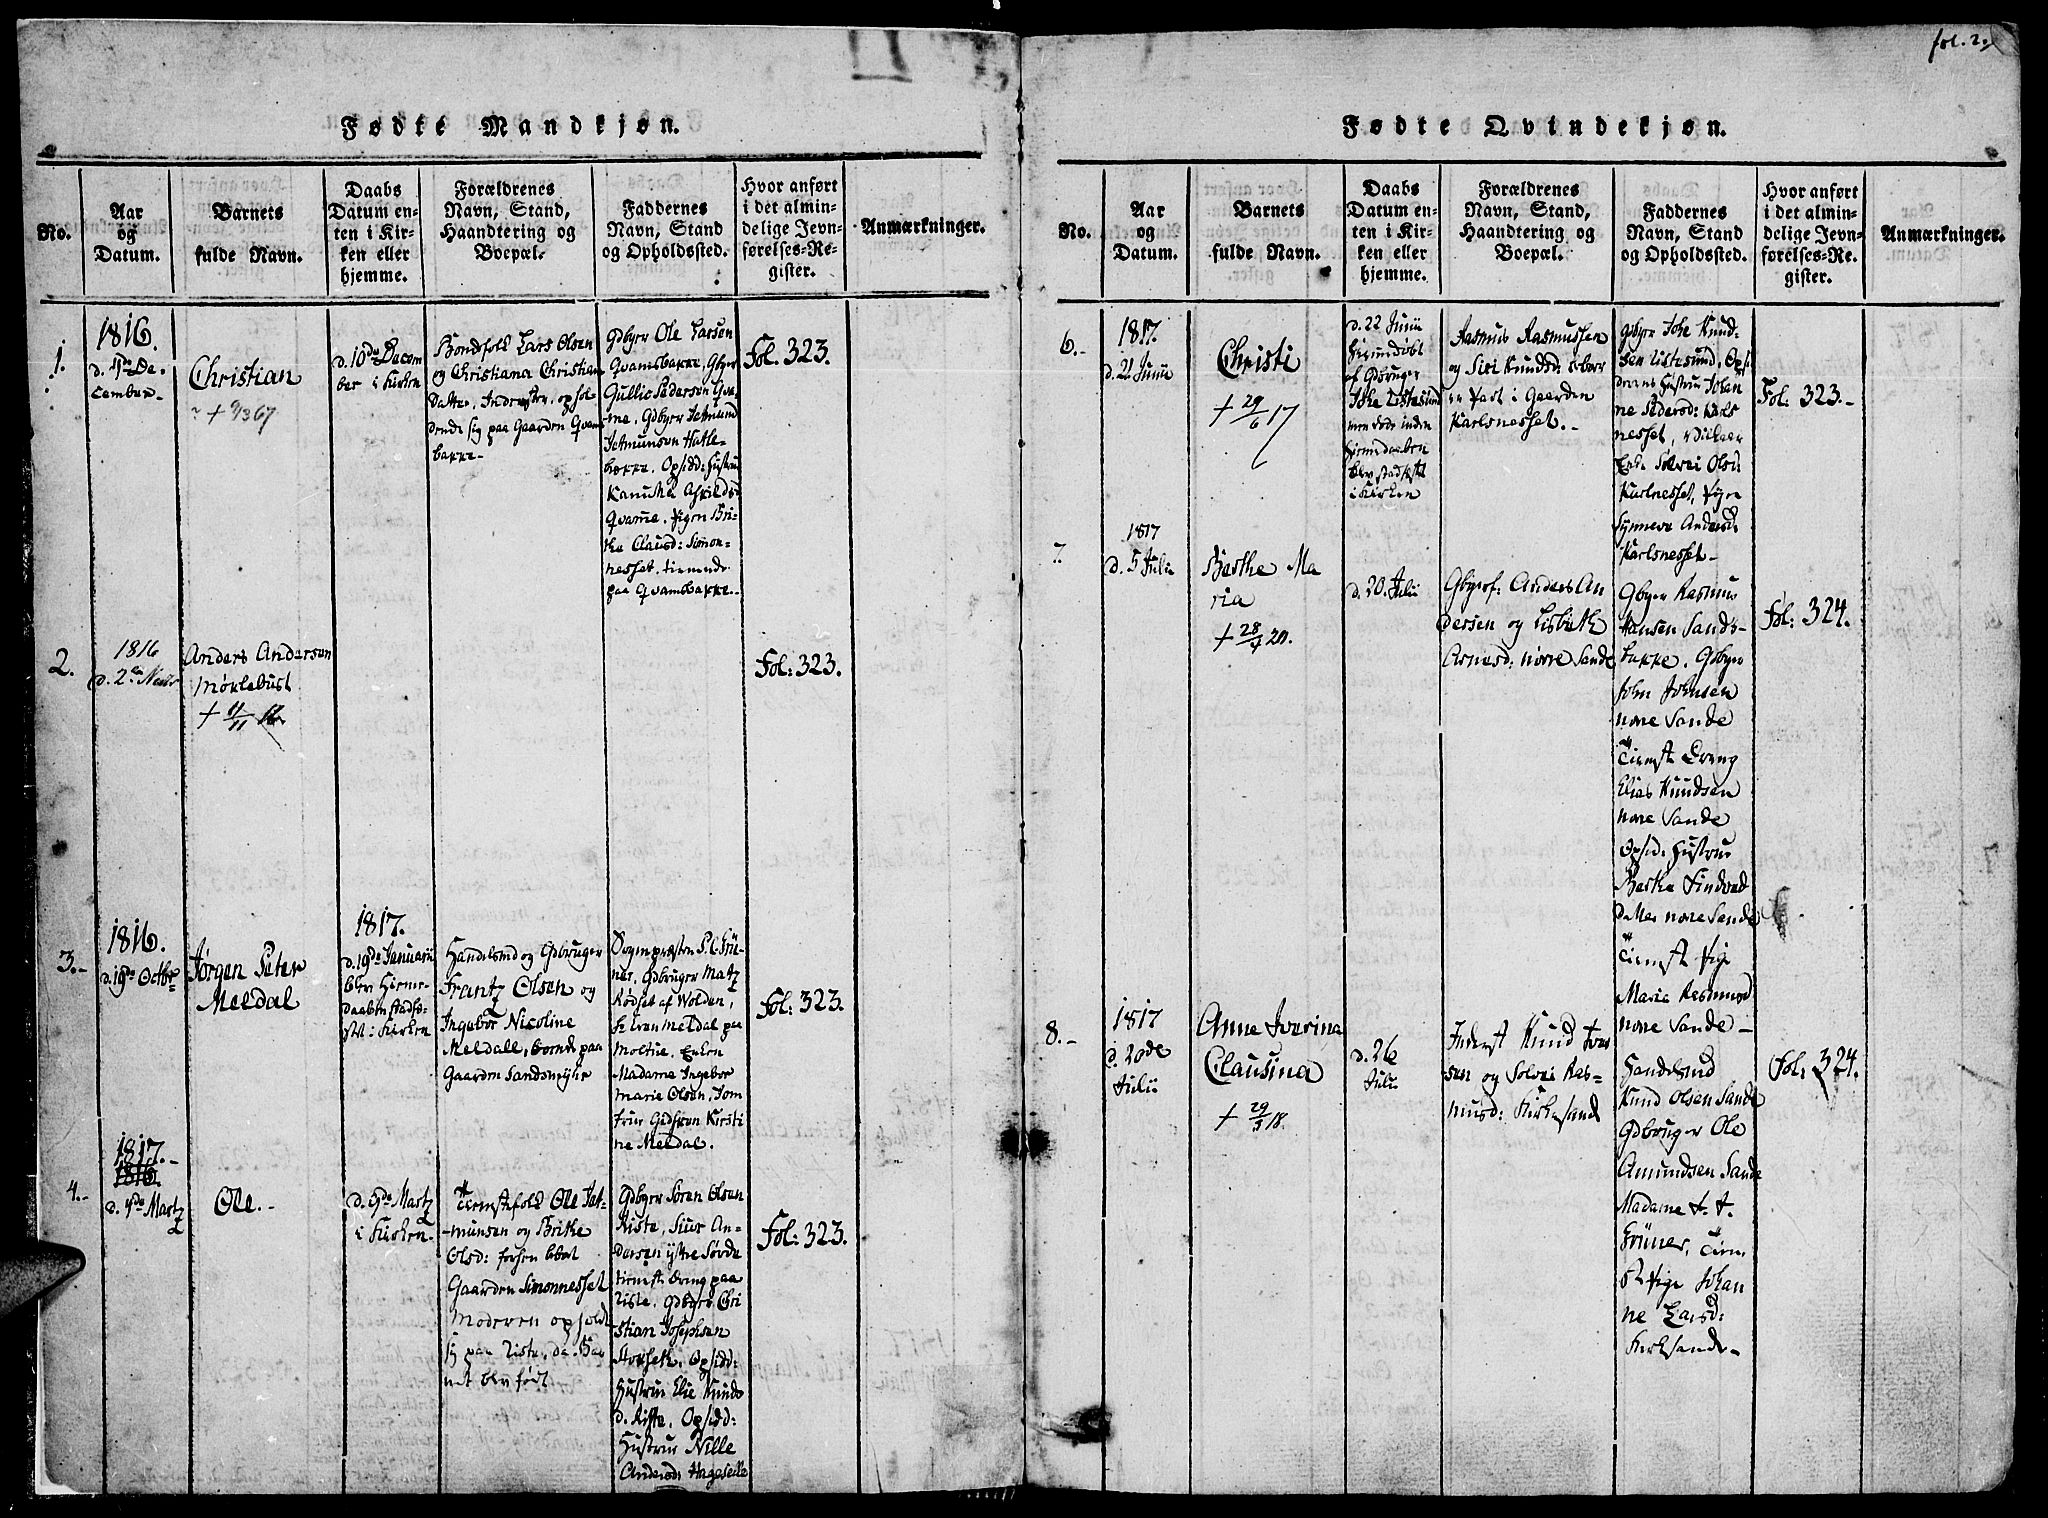 fol. 2.
Fødte Mandkjøn.
No.
Aar
og
Datum.
Barnets
fulde Navn.
Daabs
Datum en-
ten i Kir-
ken eller
hjemme.
Forældrenes
Navn, Stand,
Haandtering og
Boepæl.
Faddernes
Navn, Stand
og Opholdssted.
Hvor anført
i det almin-
delige Jevn-
førelses-Re-
gister.
Anmærkninger.
1.
1816.
d. 4de De-
cember
Christian
d. 10de Decem
ber i Kirken
Bondefolk Lars Olsen
og Christiana Christian
Datter, Inderster, ophol
dende sig paa Gaarden Qvams
bakke.
Gdbgr Ole Larsen
Qvamsbakke, Gbgr
Gullic Pedersen Qva-
me, Gdbgr Jetmund
Jetmunsen Hatle-
bakke. Opsidd: Hustrue
Qvame. Pigen Bri-
the Clausd: Simon-
nesset, tienende
paa Qvamsbakke.
Fol. 323.
2.
1816
Anders Andersen
Mørkebust
+ 11/11 16
Fol: 323.
3.
1816.
d. 19de Octbr
Jørgen Peter
Meldal
1817.
d. 19de Januarii
blev Hieme-
daaben stadfæ-
stet i Kirken
Handelsmd og Gdbruger
Frantz Olsen og
Ingebor Nicoline
Meldall, boende paa
Gaarden Sandsmyhr
Sognepræsten
Gdbruger Matz
Rødset af Wolden,
Meldal paa
Moltue. Enken
Madame Ingebor
Marie Olsen, Jom
frue Kirsti
ne Meldal.
Fol: 323.
4.
1817.
1816.
d. 4de Martz
Ole.
d. 9de Martz
i Kirken.
Tienestfolk Ole Jet-
munsen og Brithe
Olsd:
Gaarden Simonnesset
Moderen opholdt
sig paa Riste, da Bar
net blev født
Gdbgr Søren Olsen
Riste, Siur An-
dersen ystre Sørde
tienest Dreng paa
Riste. Gdbgr Chri
stian Josephsen
Opsidd:
Hustrue Elie Knuds
d. Riste. Opsidd:
Hustrue Nille
Andersd: Hageselle
Fol: 323.
Fødte Qvindekjøn.
No.
Aar
og
Datum.
Barnets
fulde Navn.
Daabs
Datum en-
ten i Kir-
ken eller
hjemme.
Forældrenes
Navn, Stand,
Haandtering og
Boepæl.
Faddernes
Navn, Stand
og Opholdssted.
Hvor anført
i det almin-
delige Jevn-
førelses-Re-
gister.
Anmærkninger.
6.
1817.
d. 21 Junii
Christi
+ 29/6 17
d. 22 Junii
Hjemmedøbt
af Gdbruger
Johe Listesund
hjemmedaaben
blev stadfæstet
i Kirken
Rasmus Rasmussen
og Siri Knudsd:
Gaarden
Karlsnesset.
Gdbgr Johe Knud-
sen Listesund, Opsi
derens Hustrue Johan
ne Pedersd: Karls
nesset,
Enke Solvei Olsd:
Karlnesset, Pigen
Synneva Andersd:
Karlsnesset
Fol: 323.
7.
1817
d. 5te Julii
Berthe Ma
ria
+ 28/4 20.
d. 20. Julii
Gbgrf: Anders An
dersen og Lisbeth
Arnesd: Nørre Sande
Gbgr Rasmus
Hansen Sands-
bakke. Gdbgr
John Johnsen
Nørre Sande
Tienest Dreng
Elias Knudsen
Nørre Sande
Opsid: Hustrue
Berthe Sindved
datter Nørre Sande
Tienest Pige
Maria Rasmusd
Nørre Sande
Fol: 324.
8.
1817
d. 20de
Julii
Anne Iverina
Clausina
+ 29/3 18.
d. 26
Julii
Inderst Knud Iver
sen og Solvei Ras-
musd: Kirkesand
Handelsmd
Knud Olsen Sande
Gdbruger Ole
Amundsen Sande
Madame
Grüner, Tiene
st Pige Johan
ne Larsd:
Kirksande
Fol: 324.